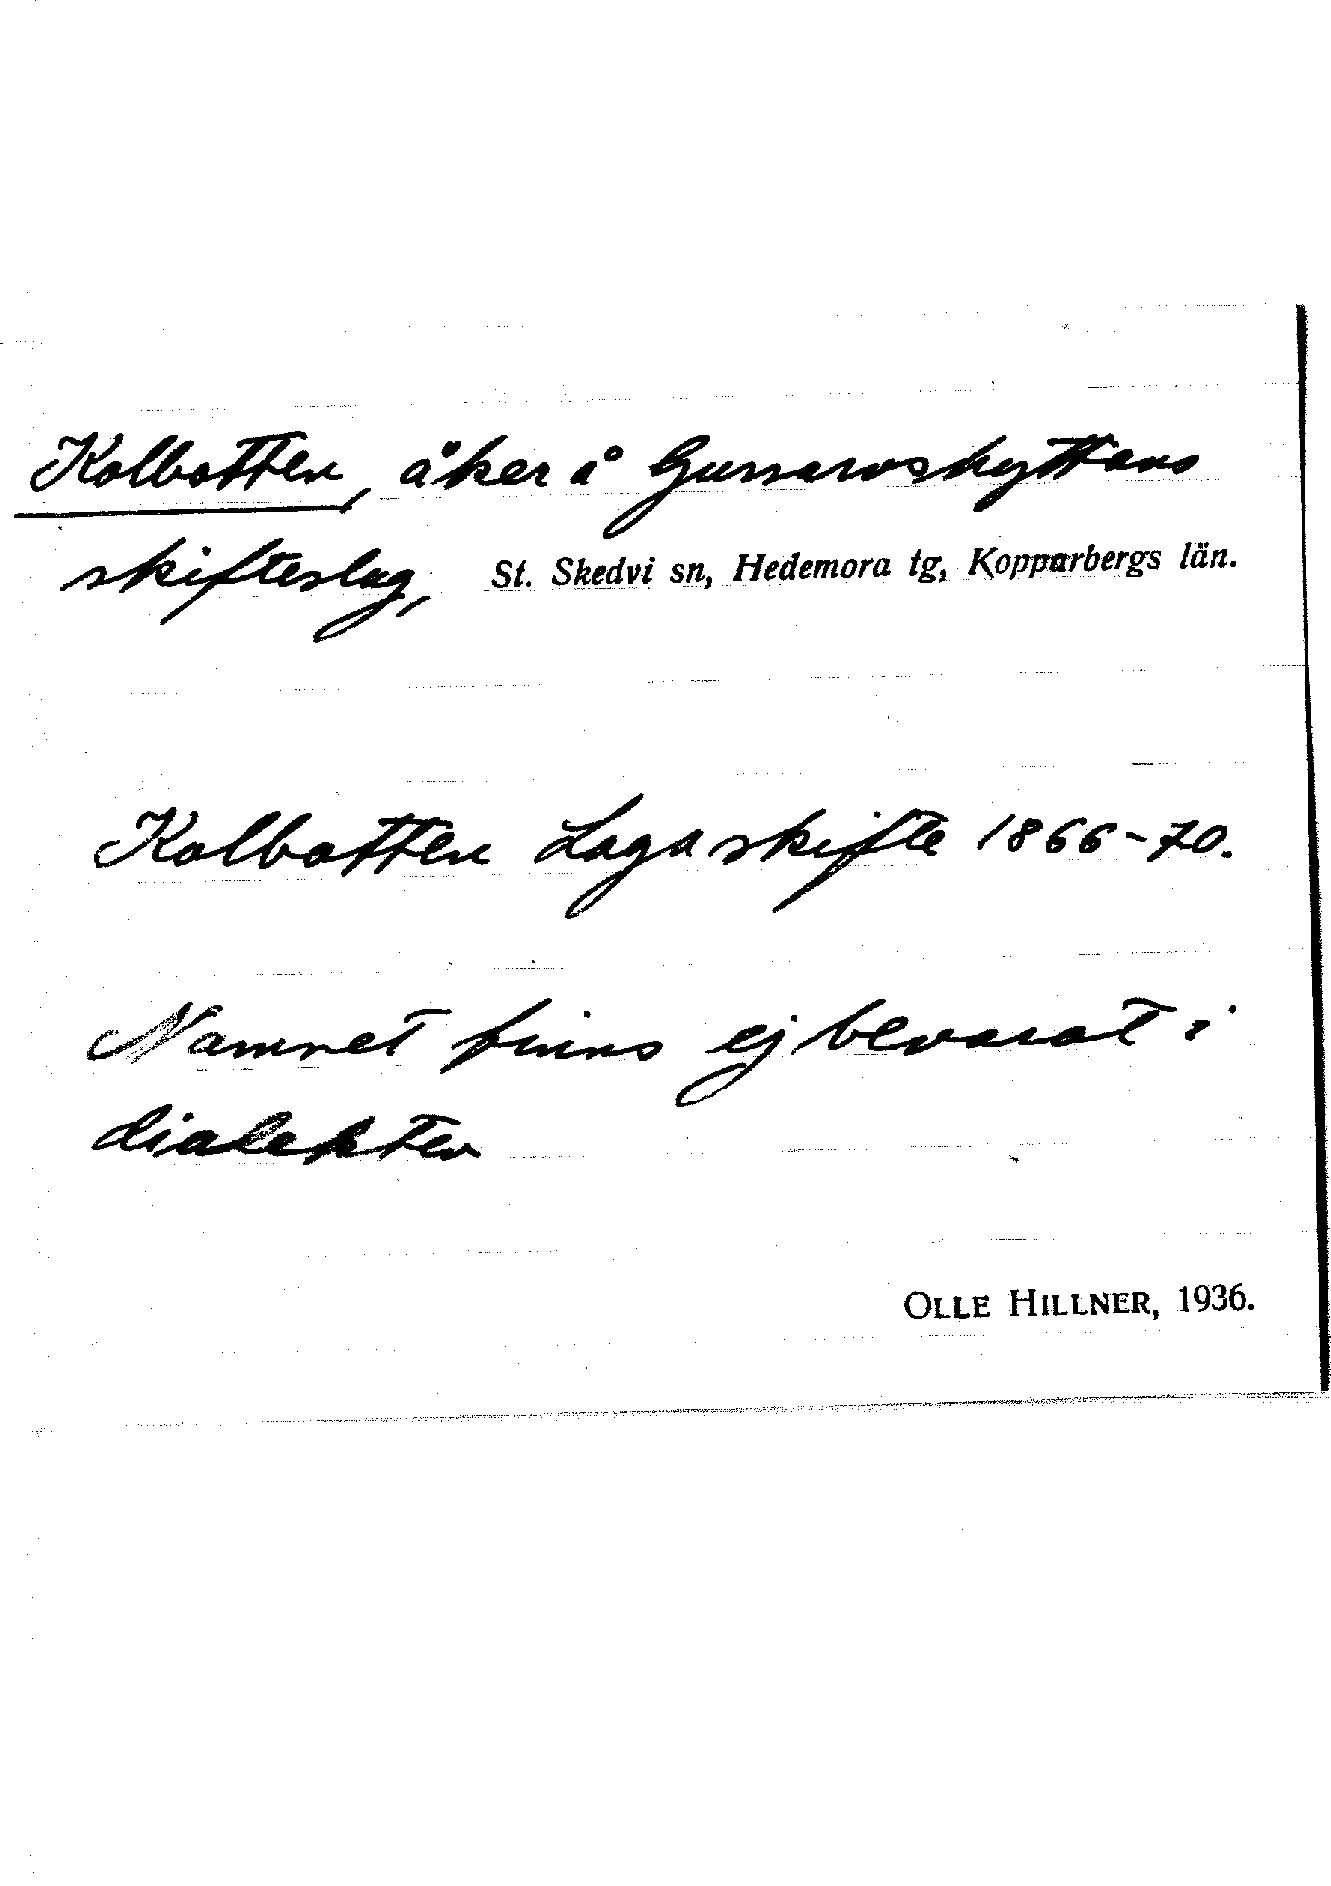 Kolbotten, åker å Gussarvshyttans
skifteslag, St. Skedvi sn, Hedemora tg, Kopparbergs län.
Kolbotten Laga skifte 1866-70.
Namnet finns ej bevarat i
dialekten
OLLE HILLNER, 1936.